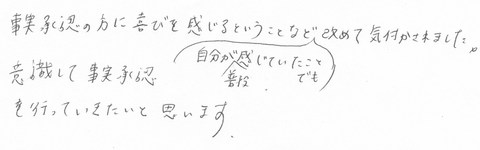 事実承認の方に喜びを感じるということなど改めて気付かされました。
自分が感じていたこと
普段 でも
意識して事実承認
を行っていきたいと思います.